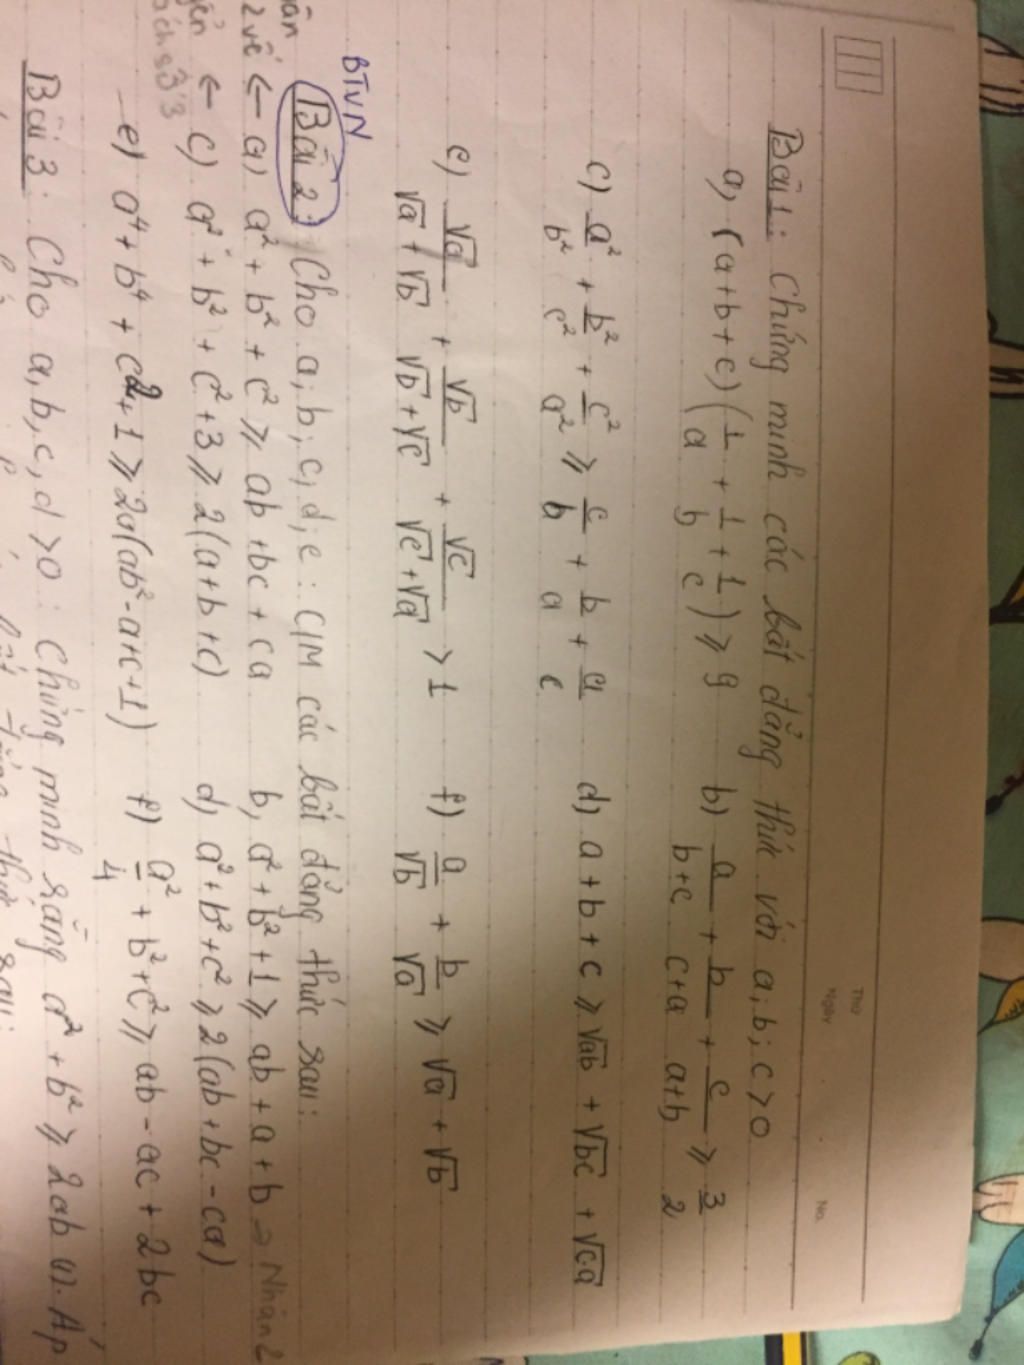 Thứ
Ngày
No.
Bài 1: Chứng minh các bất đẳng thức với a; b; c > 0
a, (a+b+c)(1/a + 1/b + 1/c) ≥ 9 b) a/b+c + b/c+a + c/a+b ≥ 3/2
c) a²/b² + b²/c² + c²/a² ≥ c/b + b/a + a/c d) a + b + c ≥ √ab + √bc + √ca
e) √a/√a+√b + √b/√b+√c + √c/√c+√a > 1 f) a/√b + b/√a ≥ √a + √b
BTVN
Bài 2: Cho a; b; c, d, e : C/M các bất đẳng thức sau:
2 vế ← a, a² + b² + c² ≥ ab + bc + ca b, a² + b² + 1 ≥ ab + a + b → Nhân 2
← c) a² + b² + c² + 3 ≥ 2(a+b+c) d, a² + b² + c² ≥ 2(ab + bc - ca)
e) a⁴ + b⁴ + c² + 1 ≥ 2a(ab² - a + c + 1) f) a²/4 + b² + c² ≥ ab - ac + 2bc
Bài 3: Cho a, b, c, d > 0 : Chứng minh rằng a² + b² ≥ 2ab (1). Áp